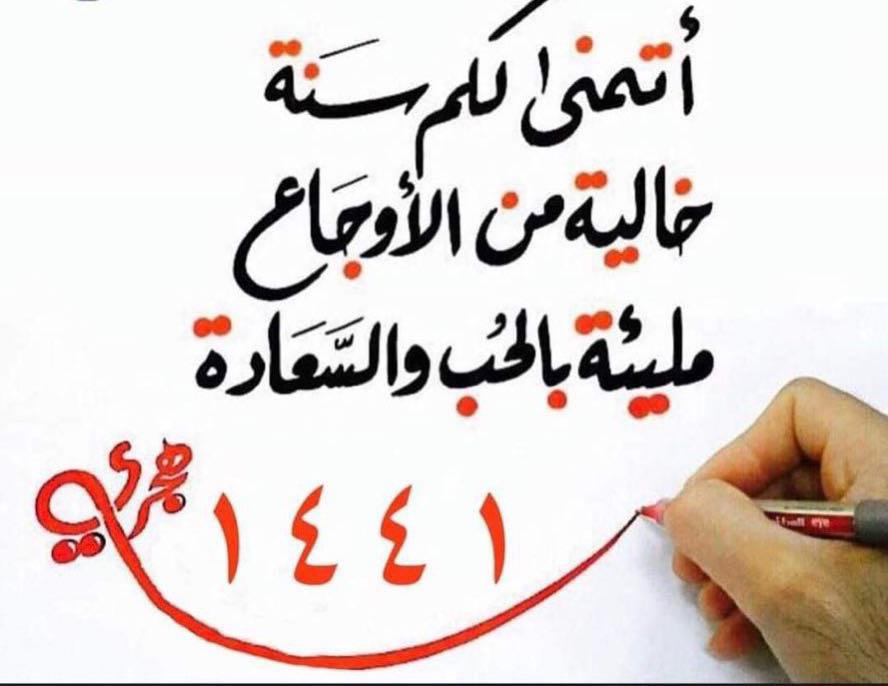 أتمنى لكم سَنة
خالية من الأوجَاع
مليئة بالحُب والسَّعَادة
١٤٤١ هجري
eye